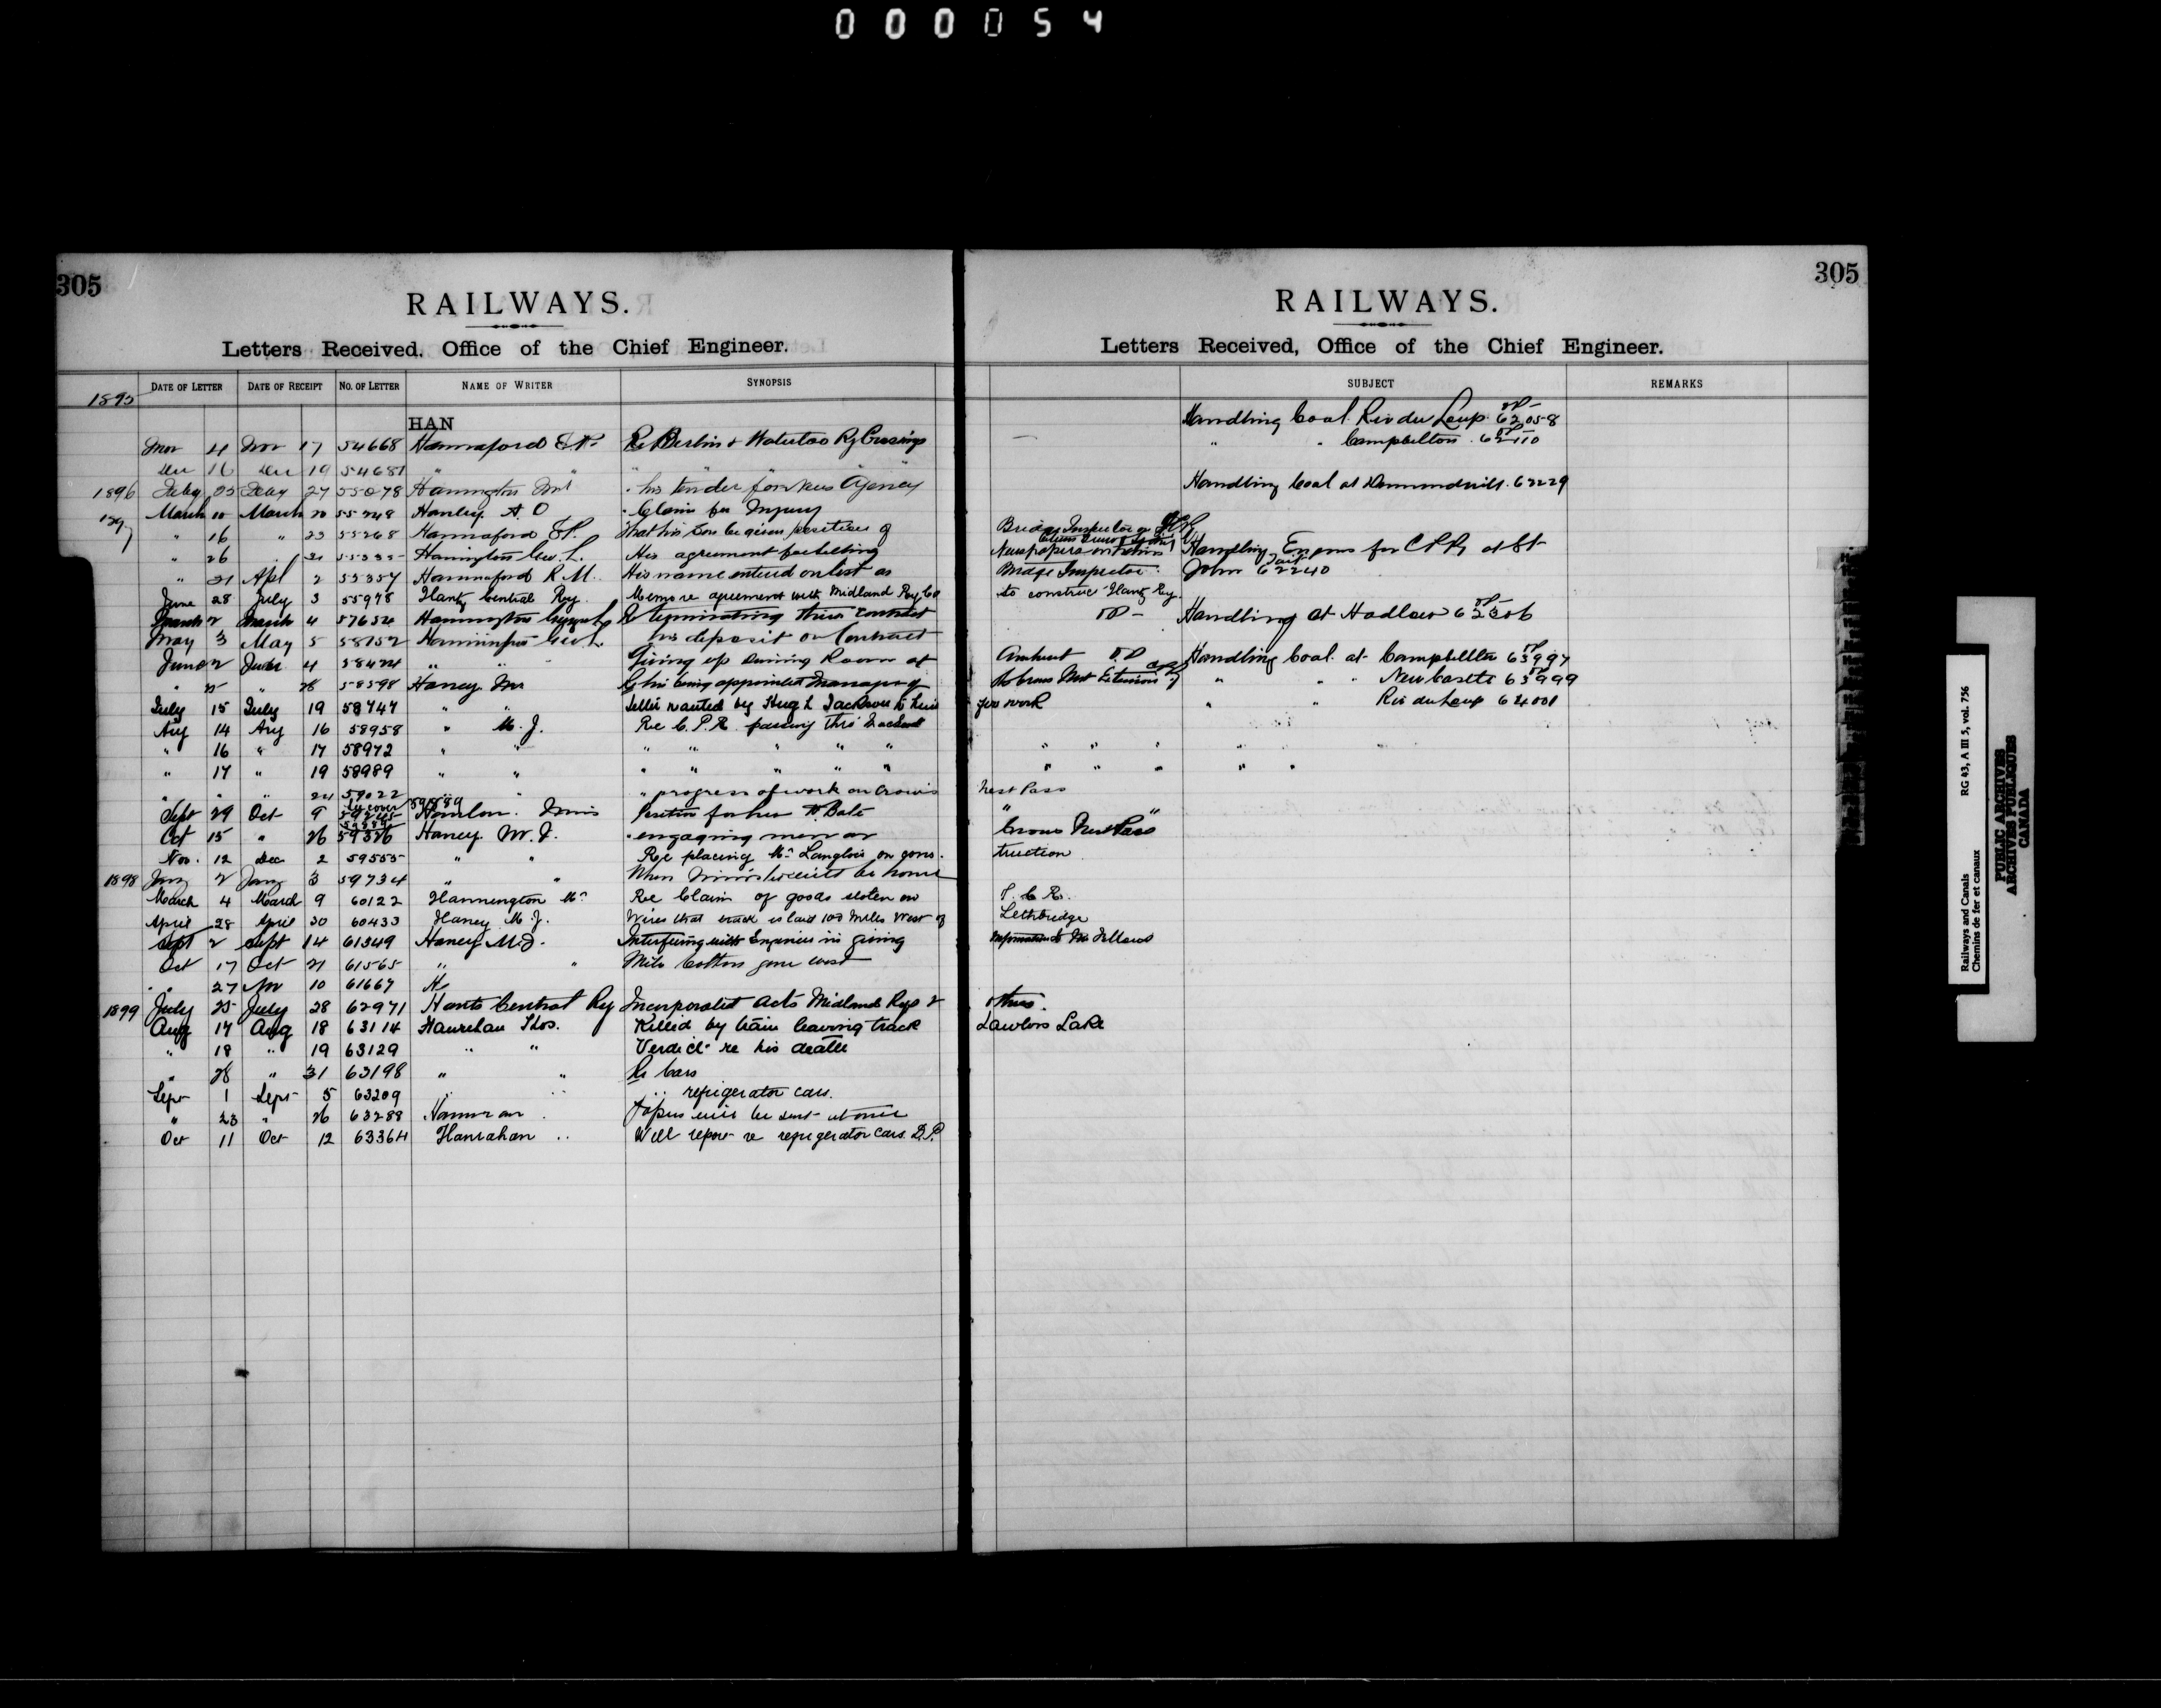 000054
305
RAILWAYS.
Letters Received. Office of the Chief Engineer.
DATE OF LETTER DATE OF RECEIPT NO. OF LETTER NAME OF WRITER SYNOPSIS
1895
HAN
Nov 4 Nov 17 54668 Hannaford E.P. Re Berlin & Waterloo Ry Crossings
Dec 16 Dec 19 54681 " " " "
1896 Feby 25 Feby 27 55078 Hanington " his tender for News Agency
March 10 March 20 55248 Hanley A. O " Claim for Injury
189
" 16 " 23 55268 Hannaford E.P. That his son be given position of
" 26 " 31 Hanington Geo. L. His agreement for selling
" 31 Apl 2 55357 Hannaford R. M. His name entered on list as
June 28 July 3 55978 Hants Central Ry. Memo re agreement with Midland Ry Co
March 2 March 4 57654 Hannington terminating their Contract
May 3 May 5 58152 Hannington Geo. L. his deposit on Contract
June 2 June 4 58424 " " Giving up Dining Room at
" 25 " 28 58598 Haney. his being appointed Manager of
July 15 July 19 58747 " " wanted by Hugh Jackson
Aug 14 Aug 16 58958 " M. J. Re C. P. R. passing thro'
" 16 " 17 58972 " " " " " " "
" 17 " 19 58989 " " " " " " "
" " " 24 59022 " " " progress of work on Crows
Sept 29 Oct 9 59245 Hanlon. Position for her
Oct 15 " 26 59326 Haney. M. J. " engaging men on
Nov. 12 Dec 2 59555 " " Re placing Mr Langlois on cons-
1898 Jany 2 Jany 3 59734 " " When Minister will be home
March 4 March 9 60122 Hannington Mr Re Claim of goods stolen on
April 28 April 30 60433 Haney M. J. Wires that track is laid 100 Miles West of
Sept 2 Sept 14 61349 Haney M. J. Interfering with Engineer in giving
Oct 17 Oct 21 61565 " " Mile bottom gone west
" 27 Nov 10 61667 H
1899 July 25 July 28 62971 Hants Central Ry Incorporated Acts Midland Rys &
Aug 17 Aug 18 63114 Hanrehan Thos. Killed by train leaving track
" 18 " 19 63129 " " Verdict re his death
" 28 " 31 63198 " " Re Cars
Sept 1 Sept 5 63209 " " " refigerator cars.
" 23 " 26 63288 papers will be sent at once
Oct 11 Oct 12 63364 Hanrahan " Will report re refrigerator cars. B.P.
305
RAILWAYS.
Letters Received, Office of the Chief Engineer.
SUBJECT REMARKS
Handling Coal Riv du Loup 62058
" " Campbellton 62110
Handling Coal at Drummondville 62229
Bridge Inspector
Newspapers on trains Handling Engines for C P Ry at St
Bridge Inspector. John 62240
to construc Hants Ry.
Handling at Hadlow 62306
Amherst Handling Coal at Campbellton 63997
Crows Nest Extension " " " New Castle 63999
for work " " Riv du Loup 64001
" " " " "
" " " " "
Nest Pass
" "
Crows Nest Pass
truction
I. C. R.
Lethbridge
information to Mr Fellows
others.
Lawlors Lake
Railways and Canals
Chemins de fer et canaux
RG 43, A III 5, vol. 756
PUBLIC ARCHIVES
ARCHIVES PUBLIQUES
CANADA